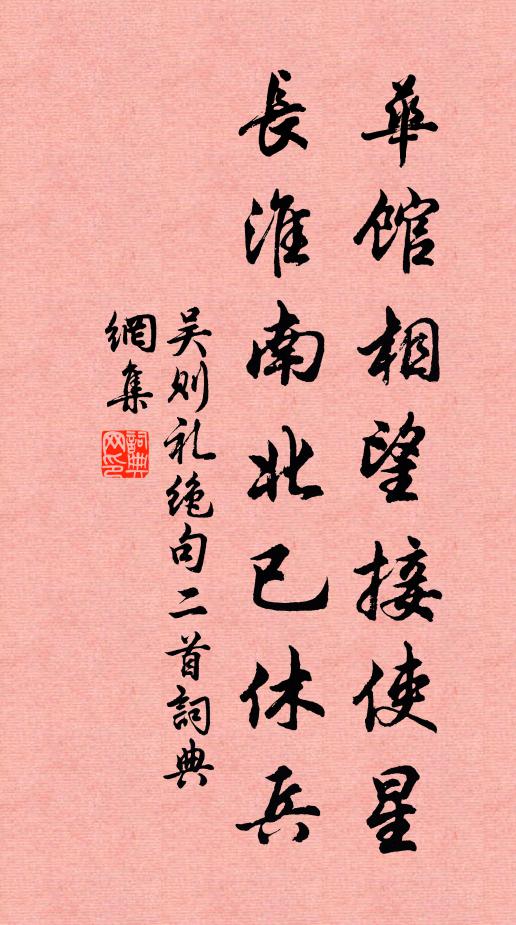 華館相望接使星
長淮南北已休兵
吴则礼绝句二首詞典
網集
詞典
网印